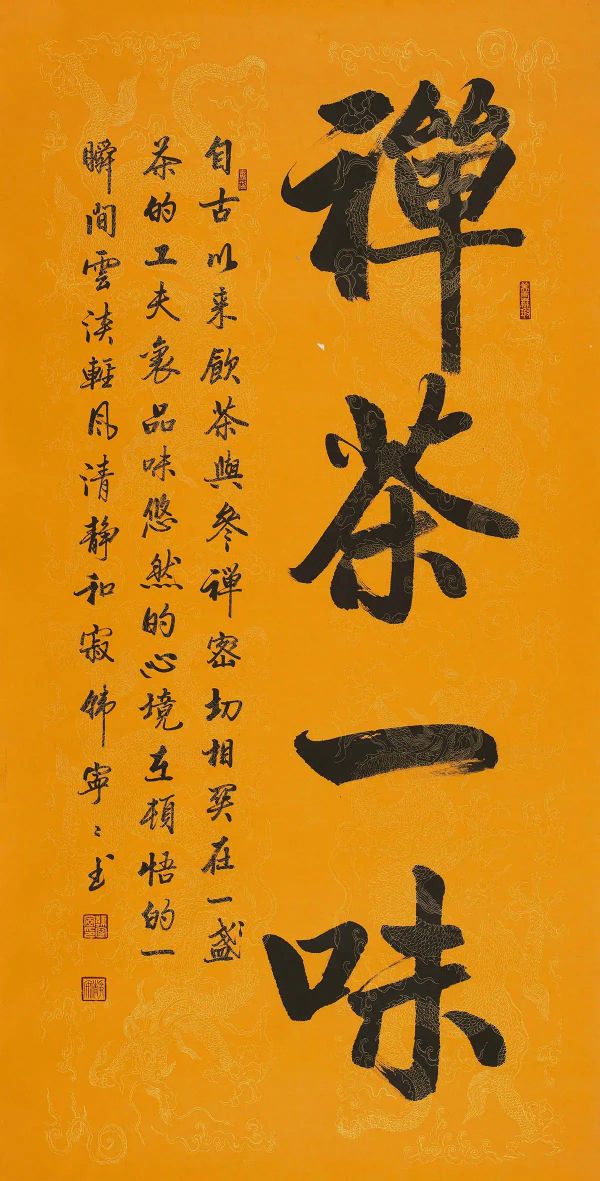 禅茶一味
自古以来飲茶與參禅密切相関在一盞
茶的工夫裏品味悠然的心境在頓悟的一
瞬間雲淡輕風清静和寂韩寧〻书